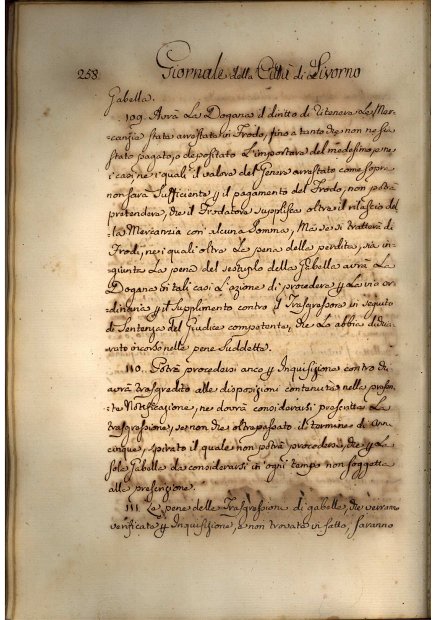 258. Giornale della Città di Livorno
Gabella.
109. Avrà La Dogana il diritto di ritenere Le Mer-
canzie state arrestate in Frodo, fino a tanto che non ne sia
stato pagato, o depositato L'importare del medesimo, e ne
casi, ne i quali il valore del Genere arrestato come sopra
non sarà Sufficiente p il pagamento del Frodo, non potrà
pretendere, che il Frodatore supplisca oltre il rilascio del
la Mercanzia con alcuna Somma, Ma se si tratterà di
Frodi, ne i quali oltre La pena della perdita, sia in-
giunta La pena del sestuplo della Gabella avrà La
Dogana in tali casi L'azione di procedere p La via or
dinaria p il Supplimento contro il Trasgressore in seguito
di Sentenza del Giudice competente, che Lo abbia dichia
rato incorso nelle pene Suddette.
110. Potrà procedersi anco p Inquisizione contro chi
avrà trasgredito alle disposizioni contenute nella presen
te Notificazione, ne dovrà considerarsi prescritta La
trasgressione, se non che oltrepassato il termine di Anni
cinque, spirato il quale non potrà procedersi, che p La
sola Gabella da considerarsi in ogni tempo non soggetta
alla prescrizione.
111. Le pene delle Trasgressioni di gabelle, che verranno
verificate p Inquisizione, e non trovate in fatto, saranno